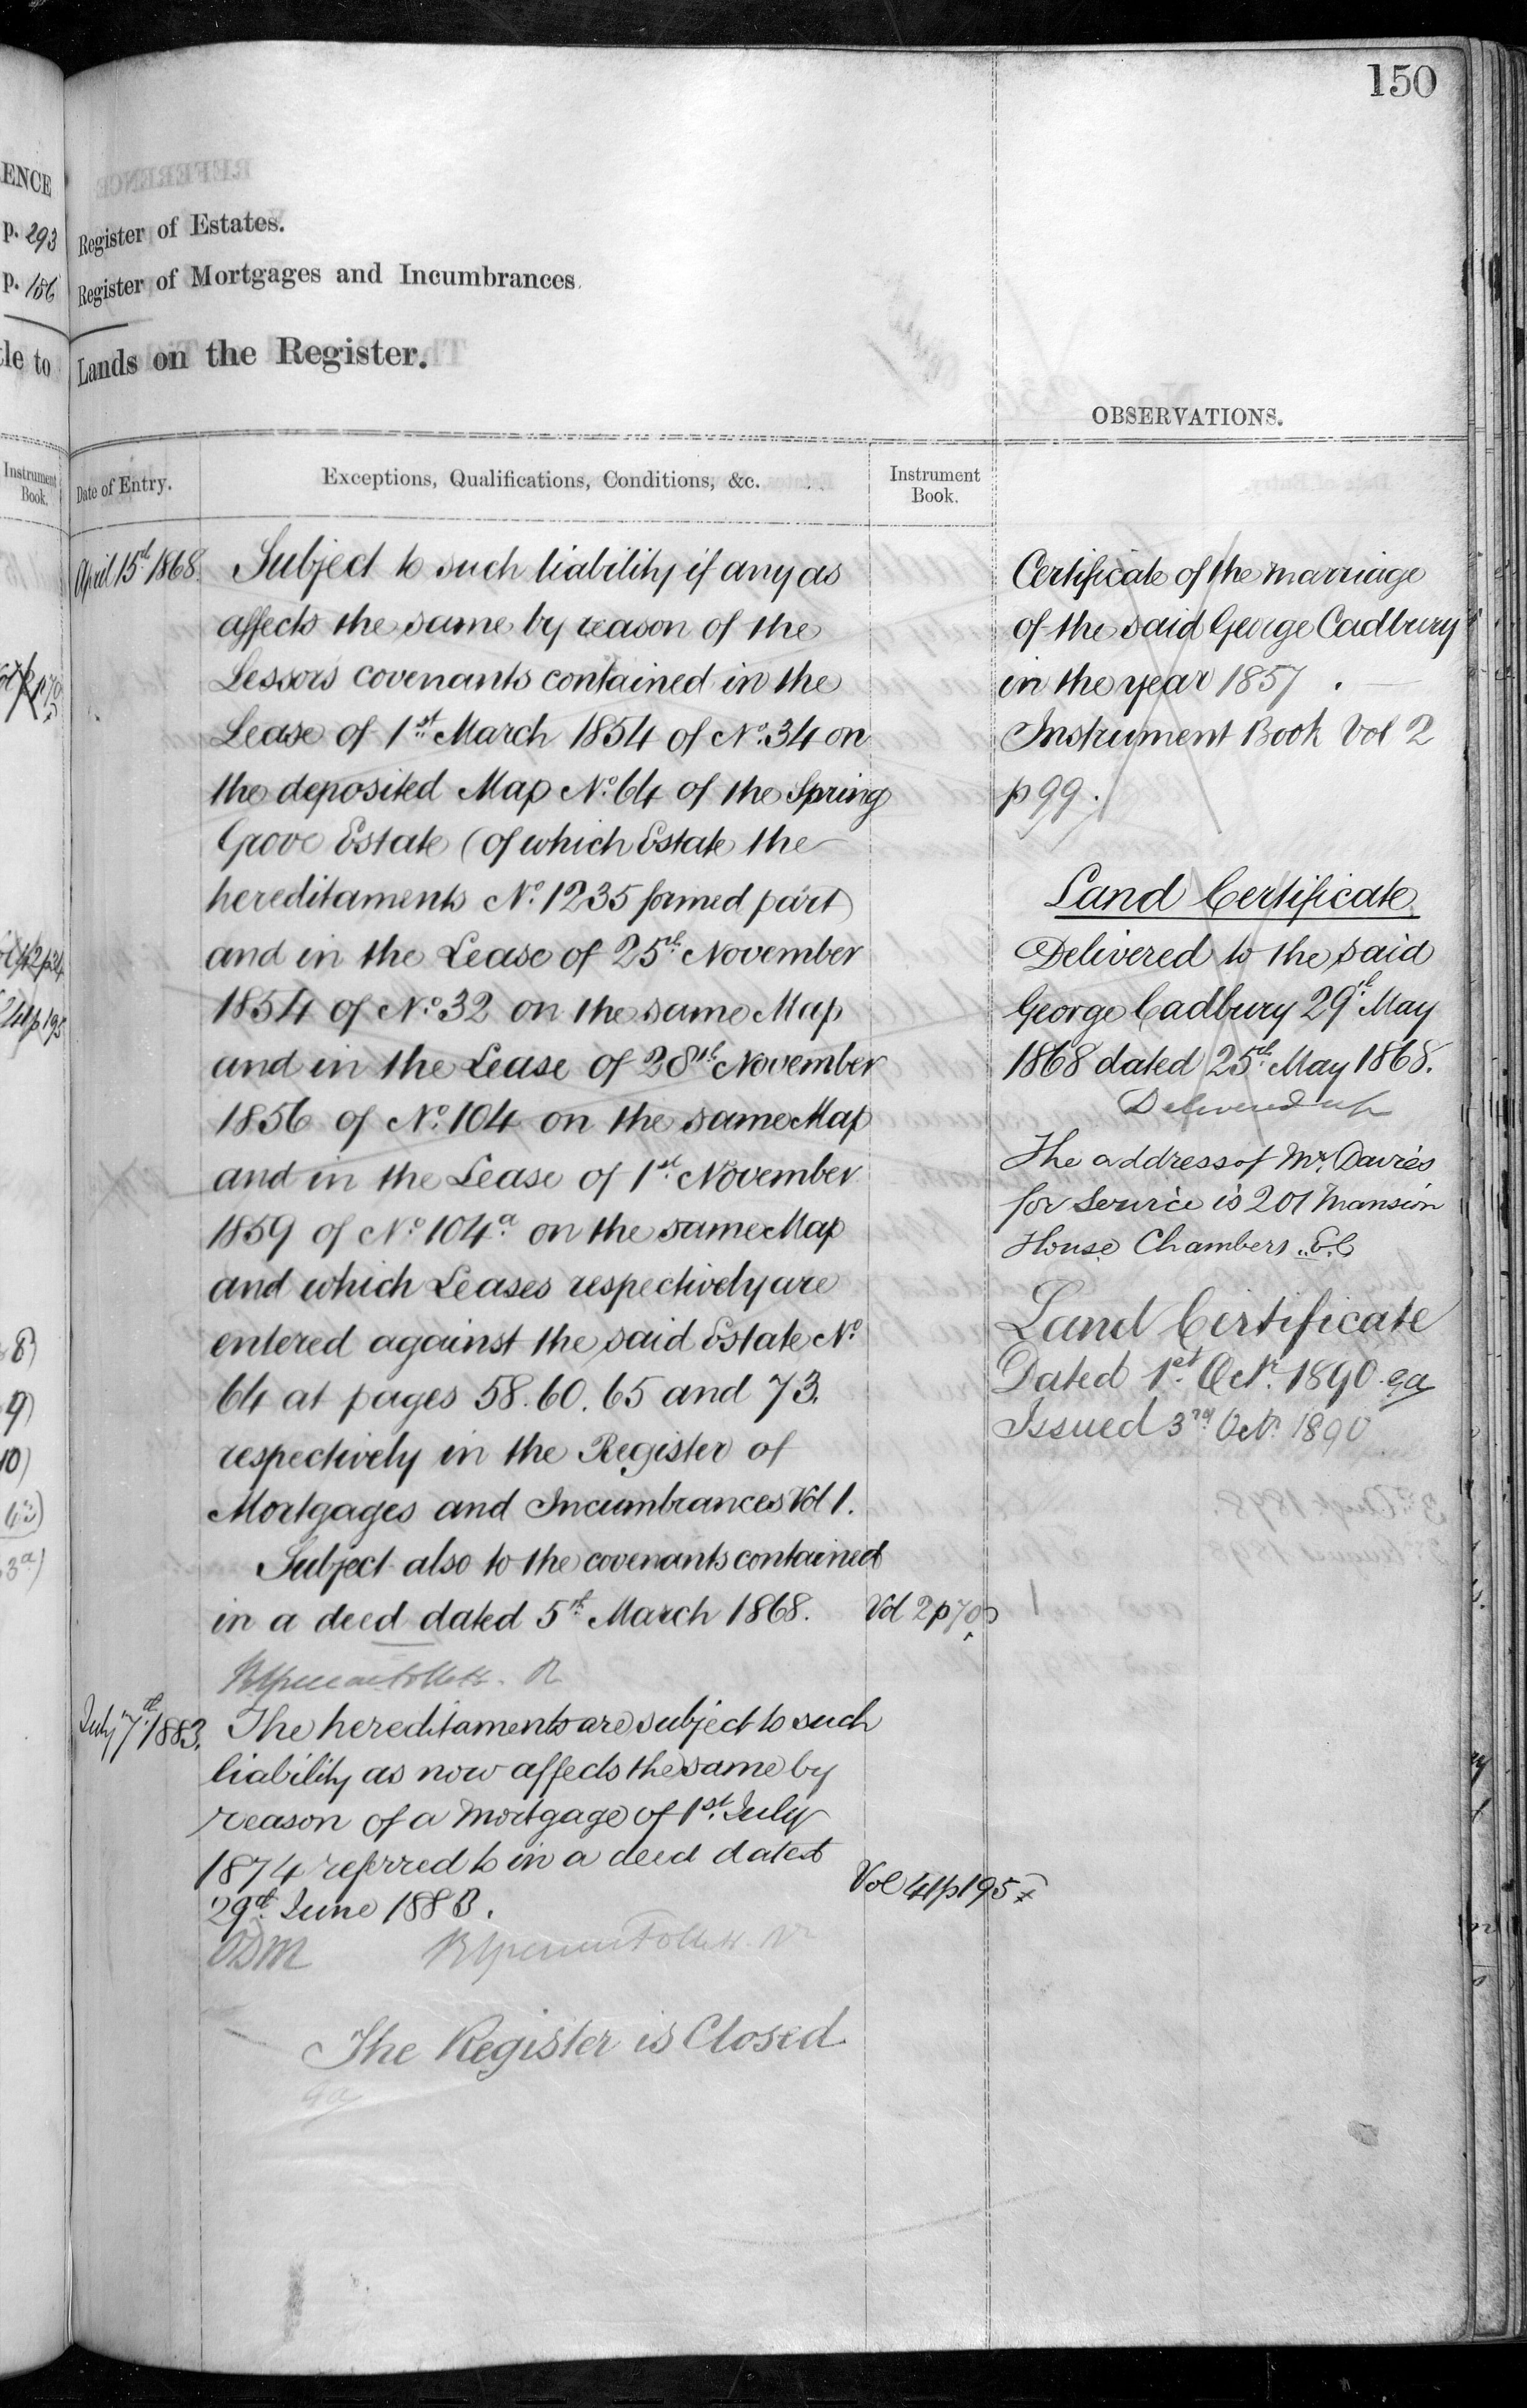 150
ENCE
p. 293
p. 156
tle to
Instrument
Book.
Register of Estates.
Register of Mortgages and Incumbrances.
Lands on the Register.
OBSERVATIONS.
Date of Entry.
Exceptions, Qualifications, Conditions, &c.
Instrument
Book.
April 15th 1868.
Subject to such liability if any as
affects the same by reason of the
Lessors covenants contained in the
Lease of 1st March 1854 of No. 34 on
the deposited Map No. 64 of the Spring
Grove Estate (of which Estate the
hereditaments No. 1235 formed part)
and in the Lease of 25th November
1854 of No. 32 on the same Map
and in the Lease of 28th November
1856 of No. 104 on the same Map
and in the Lease of 1st November
1859 of No. 104a on the same Map
and which Leases respectively are
entered against the said Estate No.
64 at pages 58. 60. 65 and 73.
respectively in the Register of
Mortgages and Incumbrances Vol 1.
Subject also to the covenants contained
in a deed dated 5th March 1868.
Vol 2 p 70
July 7th 1883.
The hereditaments are subject to such
liability as now affects the same by
reason of a Mortgage of 1st July
1874 referred to in a deed dated
29th June 1883.
Vol 41 p 195
The Register is Closed
Certificate of the marriage
of the said George Cadbury
in the year 1857.
Instrument Book Vol 2
p 99.
Land Certificate
Delivered to the said
George Cadbury 29th May
1868 dated 25th May 1868.
Delivered up
The address of Mr. Davies
for service is 201 Mansion
House Chambers E.C
Land Certificate
Dated 1st Octr. 1890
Issued 3rd Octr. 1890